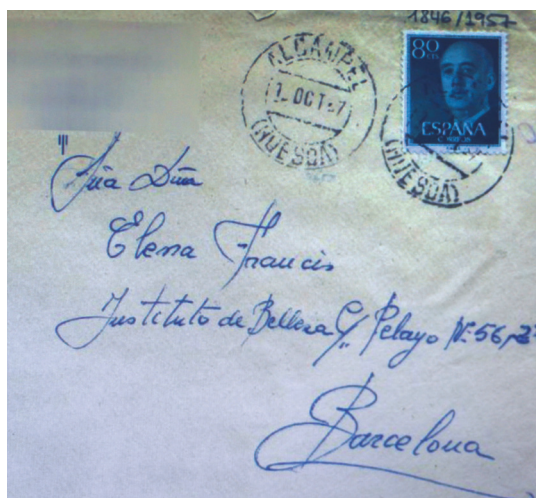 1846/1957
80 cts
ALCAMPEL
1. OCT 57
(HUESCA)
ESPAÑA
(HUESCA)
Sña Dña
Elena Francis
Instituto de Belleza C/. Pelayo Nº 56,
Barcelona